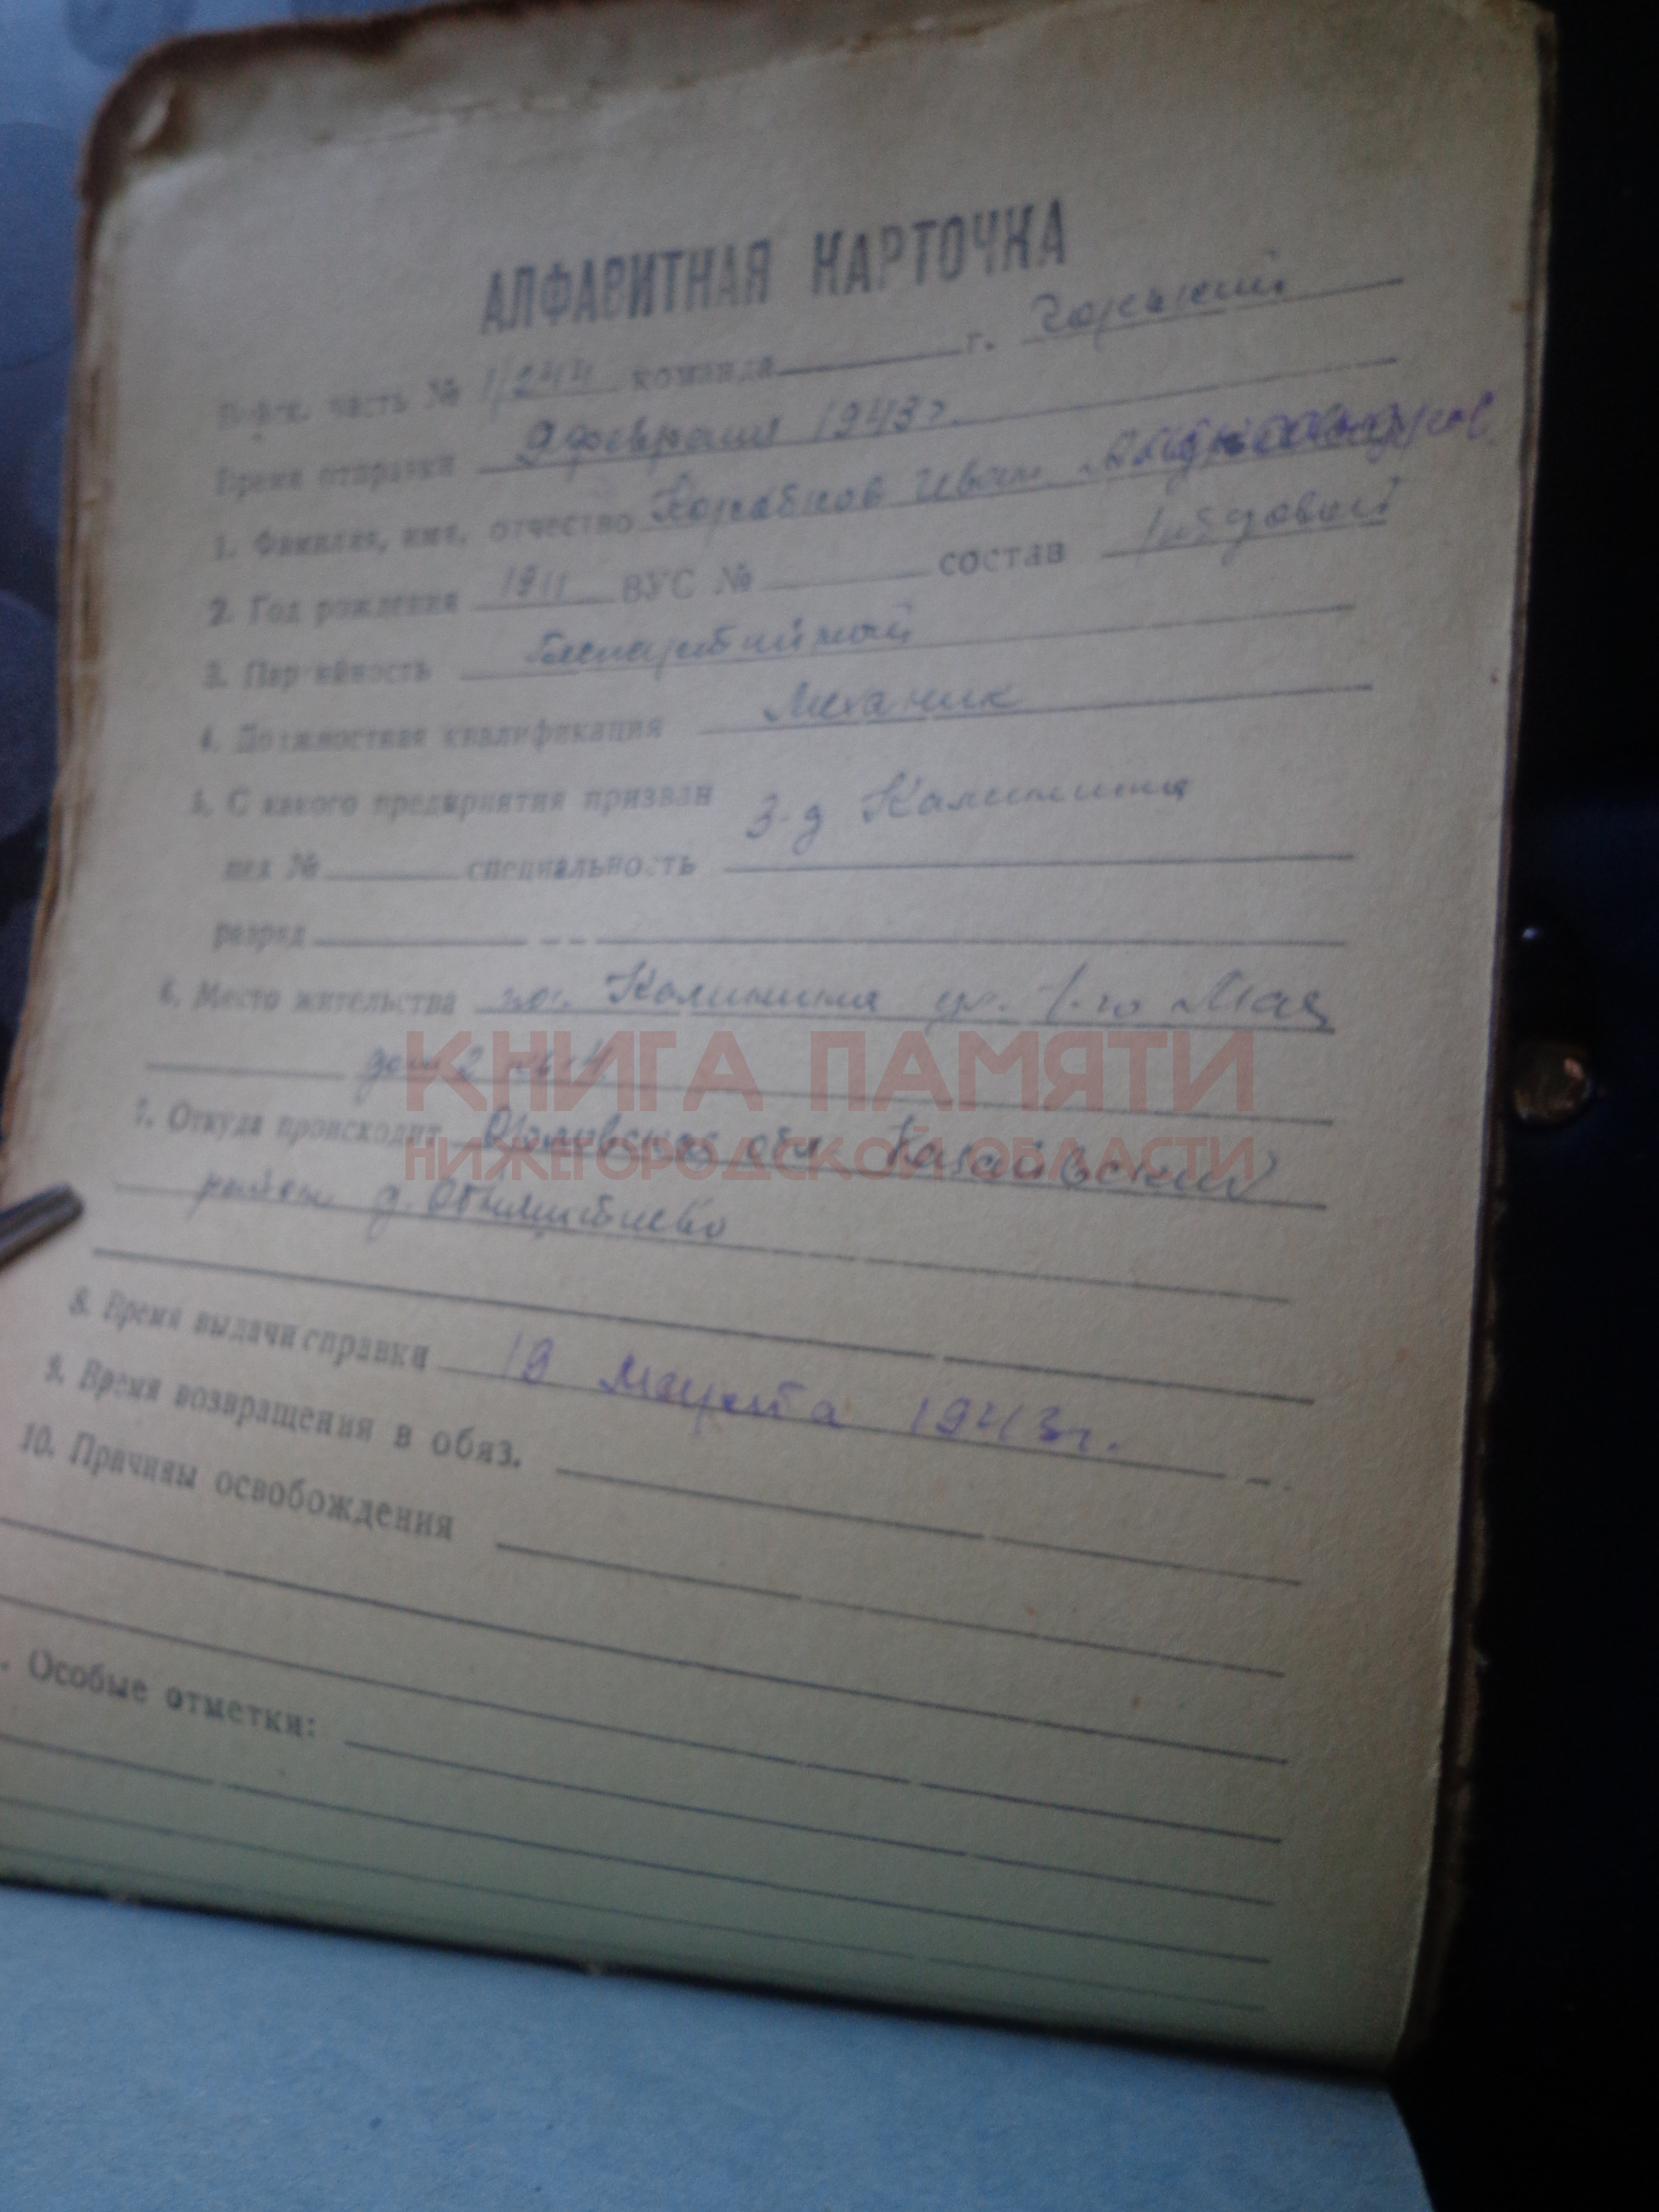 АЛФАВИТНАЯ КАРТОЧКА
Войск. часть № 1/244 команда г. Горький
Время отправки 9 февраля 1943 г.
1. Фамилия, имя, отчество Иван
2. Год рождения 1911 ВУС № состав рядовой
3. Партийность беспартийный
4. Должностная квалификация Механик
5. С какого предприятия призван з-д Калинина
цех № специальность
разряд
6. Место жительства пос. Калинина ул. 1-го Мая
дом 2 кв 4
КНИГА ПАМЯТИ
7. Откуда происходит обл
НИЖЕГОРОДСКОЙ ОБЛАСТИ
район д.
8. Время выдачи справки 19 марта 1943 г.
9. Время возвращения в обяз.
10. Причины освобождения
. Особые отметки: